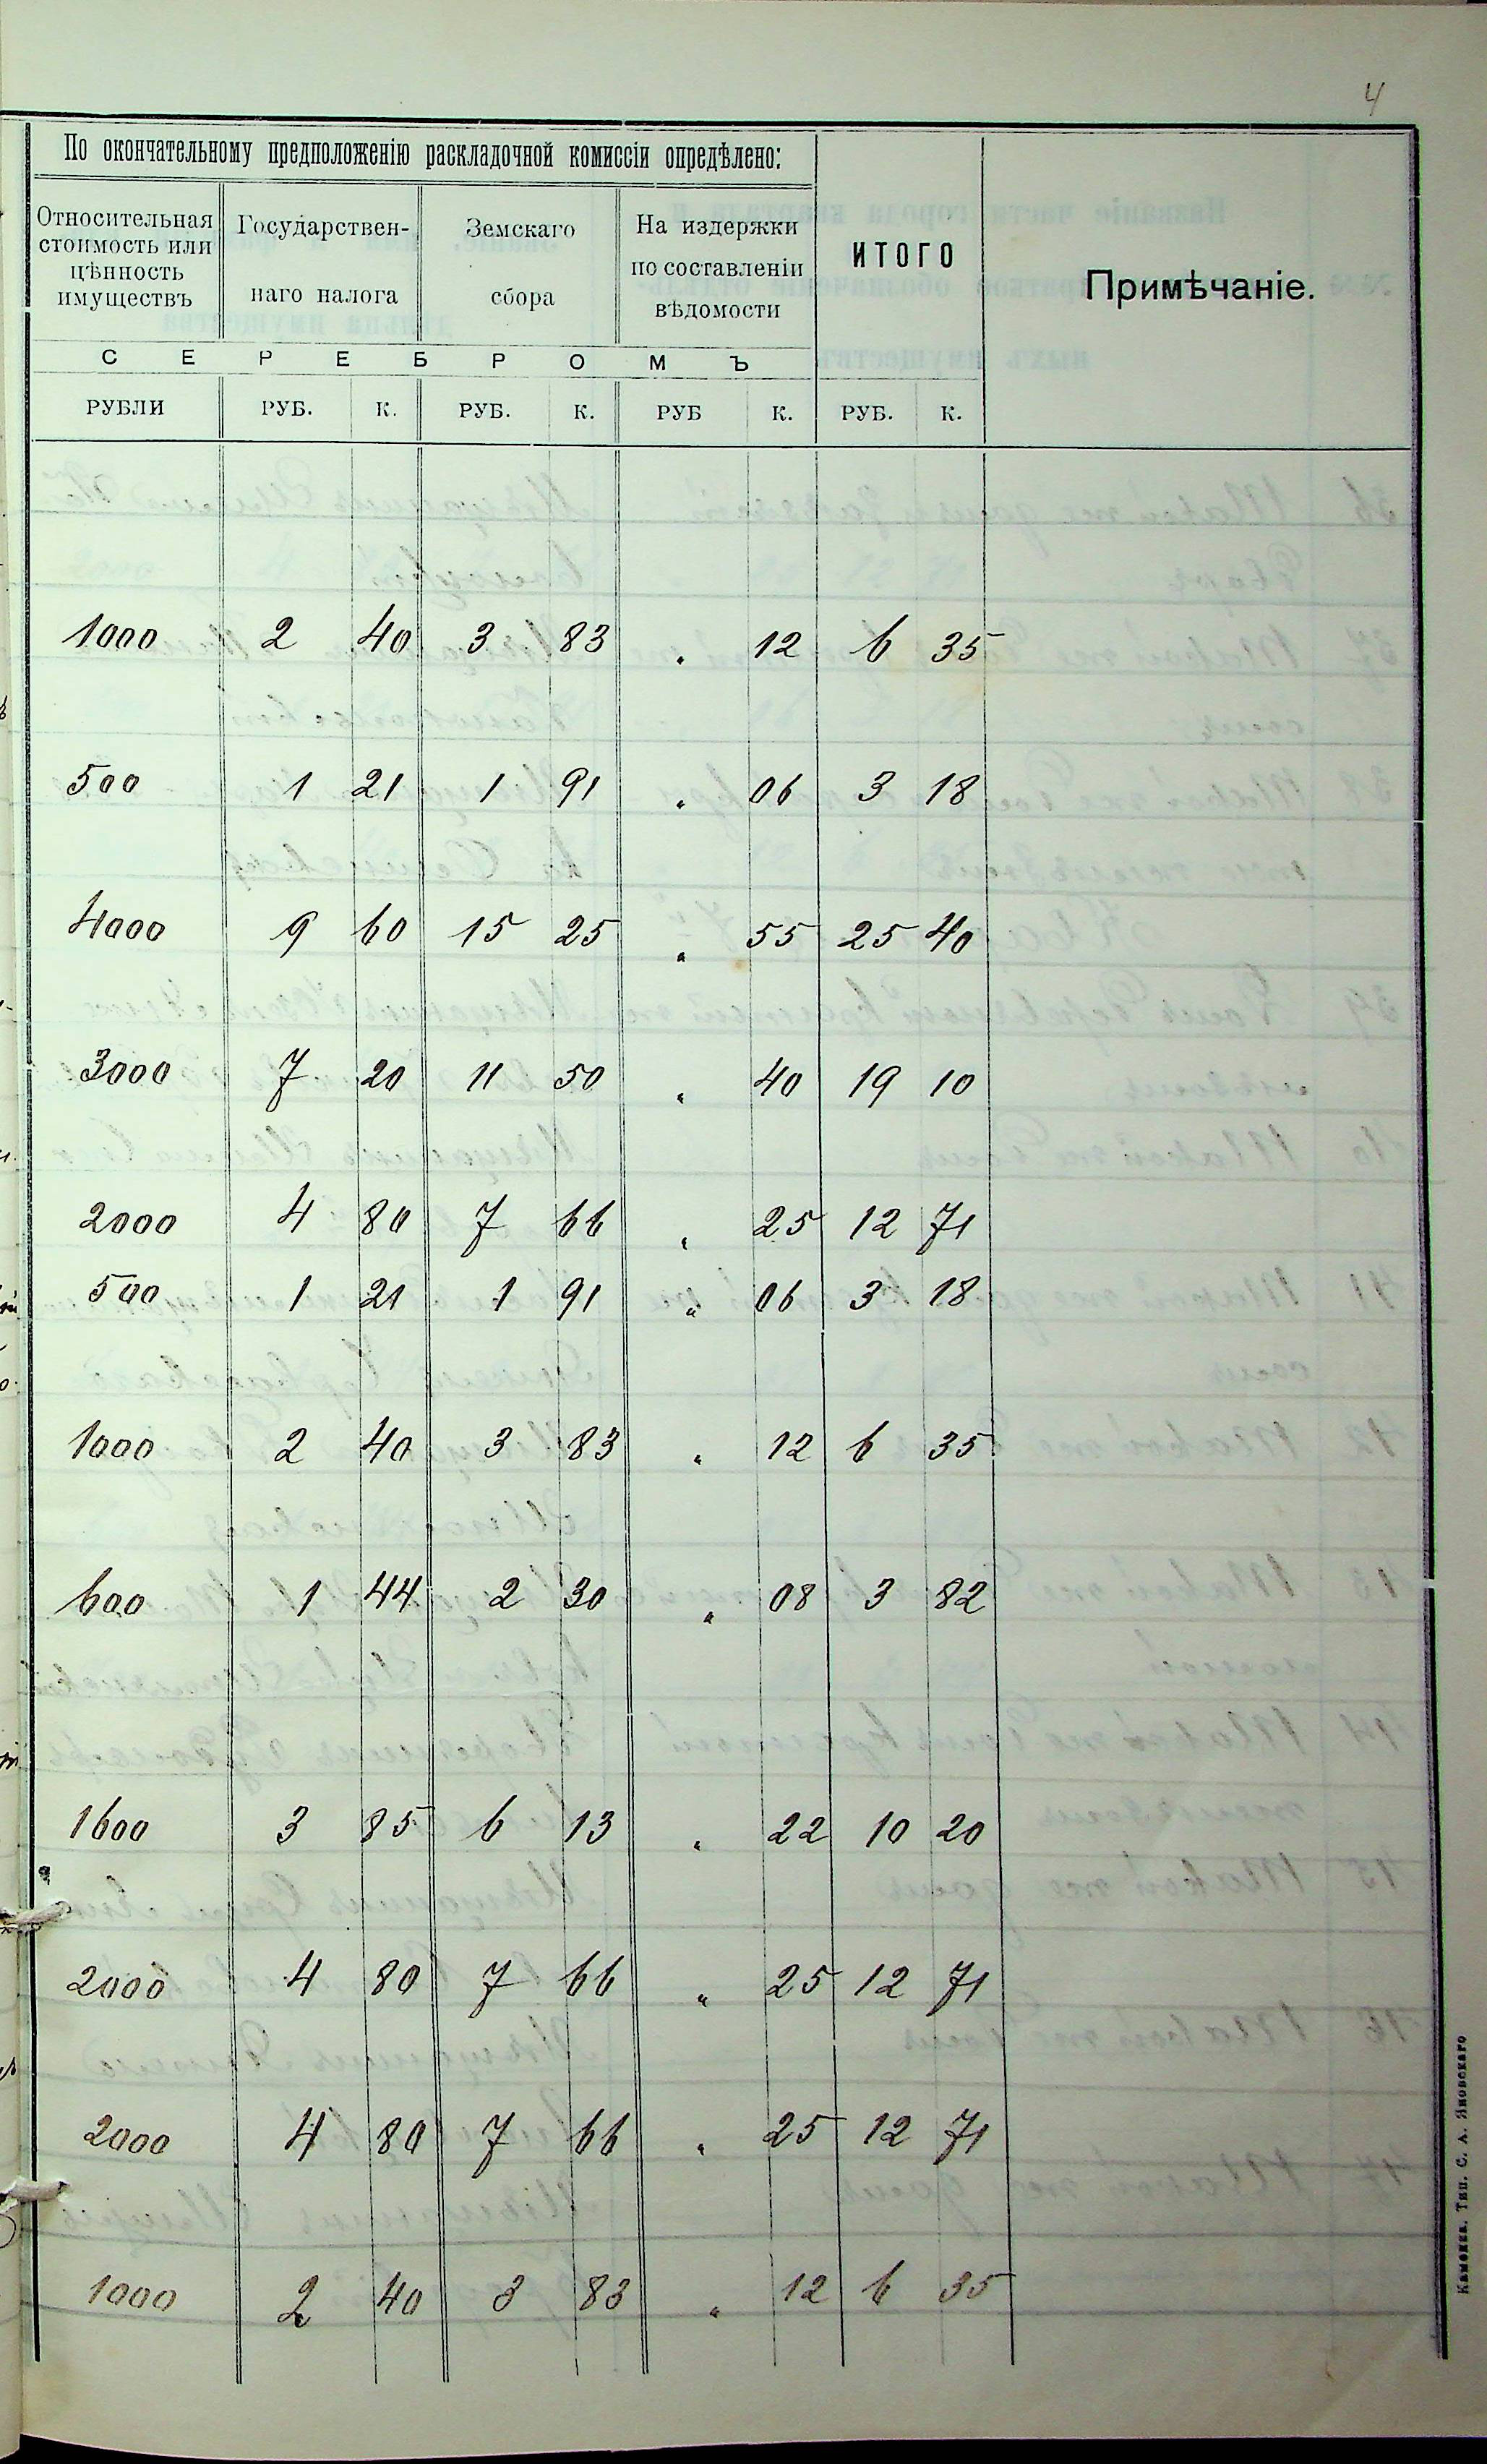 4
По окончательному предположенію раскладочной комиссіи опредѣлено:
Относительная стоимость или цѣнность имуществъ
Государственнаго налога
Земскаго сбора
На издержки по составленіи вѣдомости
ИТОГО
Примѣчаніе.
СЕРЕБРОМЪ
РУБЛИ РУБ. К. РУБ. К. РУБ К. РУБ. К.
1000 2 40 3 83 „ 12 6 35
500 1 21 1 91 „ 06 3 18
4000 9 60 15 25 „ 55 25 40
3000 7 20 11 50 „ 40 19 10
2000 4 80 7 66 „ 25 12 71
500 1 21 1 91 „ 06 3 18
1000 2 40 3 83 „ 12 6 35
600 1 44 2 30 „ 08 3 82
1600 3 85 6 13 „ 22 10 20
2000 4 80 7 66 „ 25 12 71
2000 4 80 7 66 „ 25 12 71
1000 2 40 3 83 „ 12 6 35
Каменка. Тип. С. А. Яновскаго